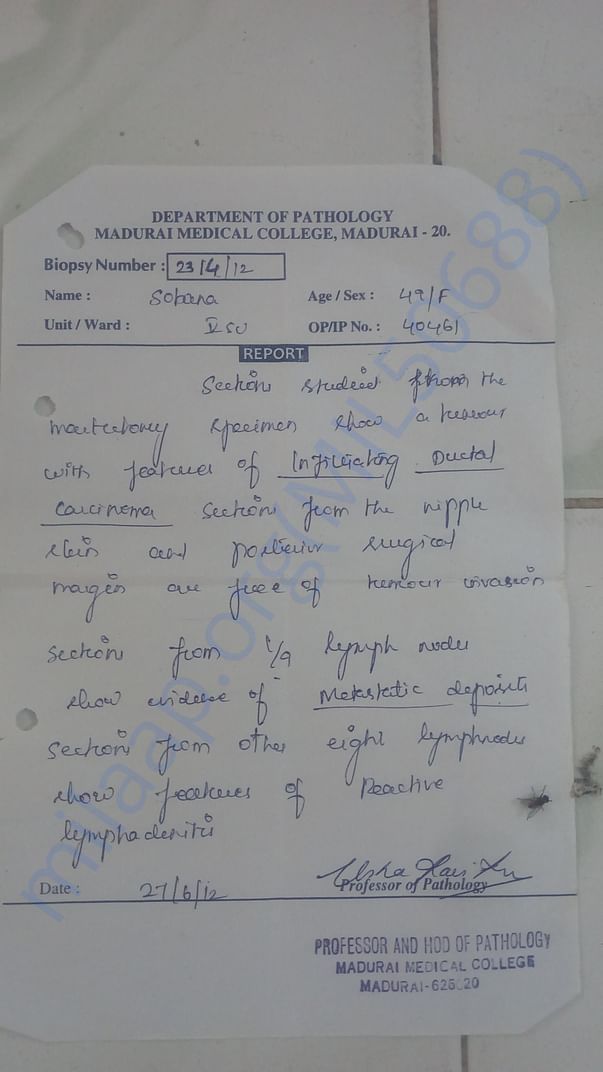 DEPARTMENT OF PATHOLOGY
MADURAI MEDICAL COLLEGE, MADURAI - 20.
Biopsy Number : 23/4/12
Name : Sobana Age / Sex : 49/F
Unit / Ward : V SU OP/IP No. : 40461
REPORT
Sections studied from the
mastectomy specimen show a tumour
with features of Infiltrating Ductal
Carcinoma Sections from the nipple
skin and posterior surgical
margin are free of tumour invasion
Sections from 1/9 lymph nodes
show evidence of Metastatic deposits
Sections from other eight lymphnodes
show features of Reactive
lymphadenitis
Date : 27/6/12
Professor of Pathology
PROFESSOR AND HOD OF PATHOLOGY
MADURAI MEDICAL COLLEGE
MADURAI-625020
milaap.org(MIL50688)